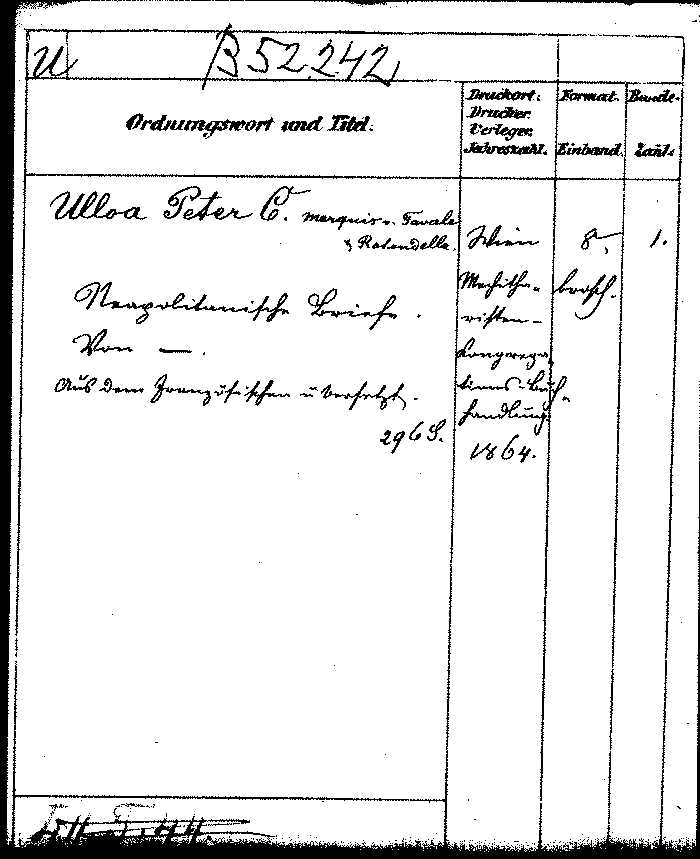 U B 52.242
Ordnungswort und Titel.
Druckort.
Drucker.
Verleger.
Jahreszahl.
Format.
Einband.
Bände-
Zahl.
Ulloa Peter C. marquis v. Favale
& Rotondella.
Neapolitanische Briefe.
Von —.
Aus dem Französischen übersetzt.
296 S.
Wien
Mechitha-
risten-
Kongrega-
tions-Buch-
handlung
1864.
8.
brosch.
1.